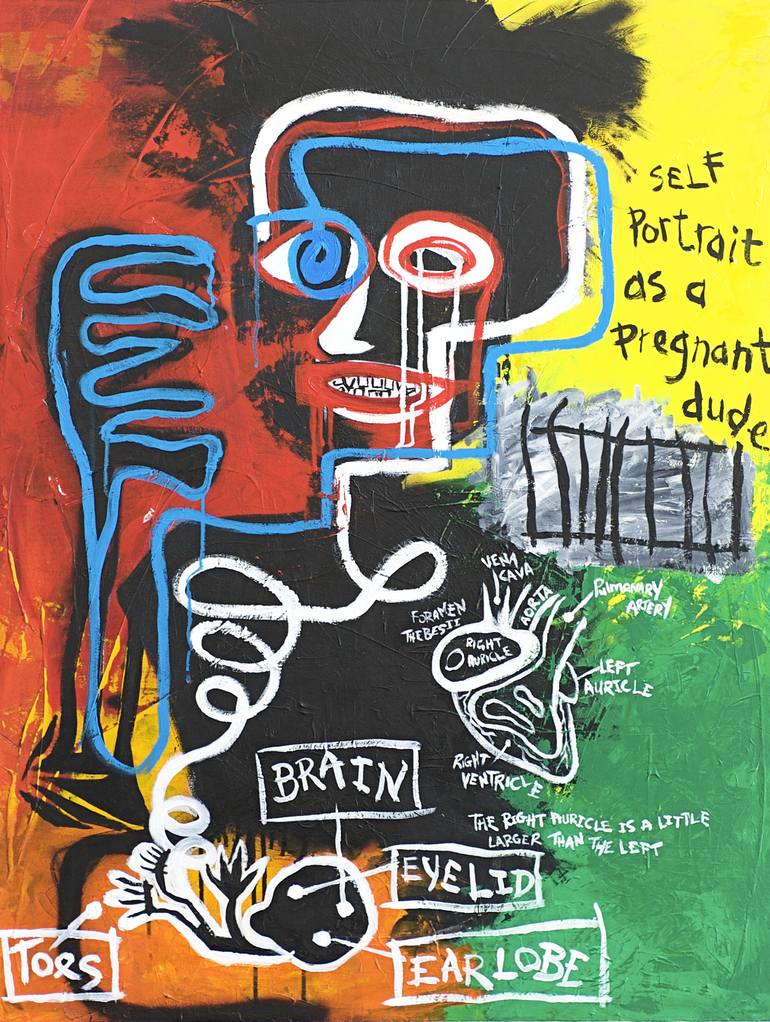 SELF
Portrait
as a
Pregnant
dude
VENA
CAVA
AORTA
PULMONARY
ARTERY
FORAMEN
THEBESII
RIGHT
AURICLE
LEFT
AURICLE
RIGHT
VENTRICLE
THE RIGHT AURICLE IS A LITTLE
LARGER THAN THE LEFT
BRAIN
EYELID
TOES
EAR LOBE